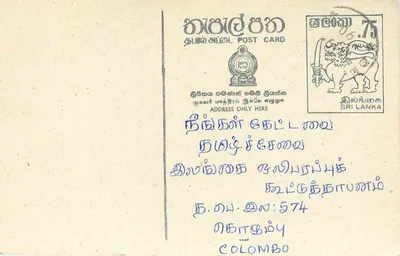 තැපැල්පත
தபால் அட்டை POST CARD
ලිපිනය පමණක් මෙහි ලියන්න
ADDRESS ONLY HERE
.75
இலங்கை
SRI LANKA
நீங்கள் கேட்டவை
தமிழ்ச்சேவை
இலங்கை ஒலிபரப்புக்
கூட்டுத்தாபனம்
த.பெ.இல: 574
கொழும்பு
COLOMBO